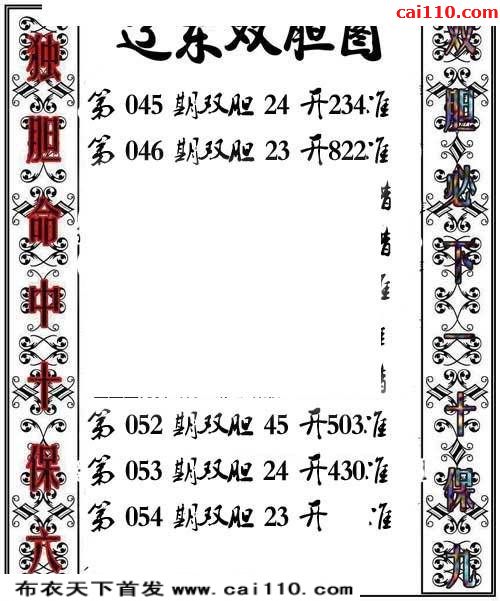 cai110.com
辽东双胆图
独胆命中十保六
第 045 期双胆 24 开234准
第 046 期双胆 23 开822准
第 052 期双胆 45 开503准
第 053 期双胆 24 开430准
第 054 期双胆 23 开 准
双胆必下一十保九
布衣天下首发 www.cai110.com